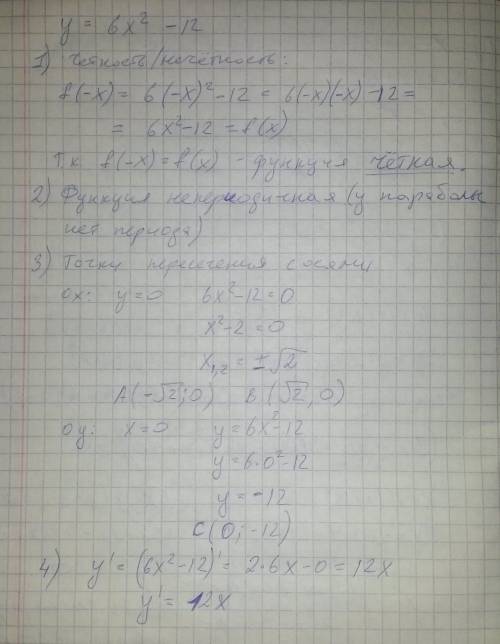 y = 6x² - 12
1) Чётность/нечётность:
f(-x) = 6(-x)² - 12 = 6(-x)(-x) - 12 =
= 6x² - 12 = f(x)
Т.к. f(-x) = f(x) - функция чётная.
2) Функция непериодичная (у параболы
нет периода)
3) Точки пересечения с осями
ox: y = 0 6x² - 12 = 0
x² - 2 = 0
x₁,₂ = ±√2
A(-√2; 0) B(√2, 0)
oy: x = 0 y = 6x² - 12
y = 6·0² - 12
y = -12
C(0; -12)
4) y' = (6x² - 12)' = 2·6x - 0 = 12x
y' = 12x